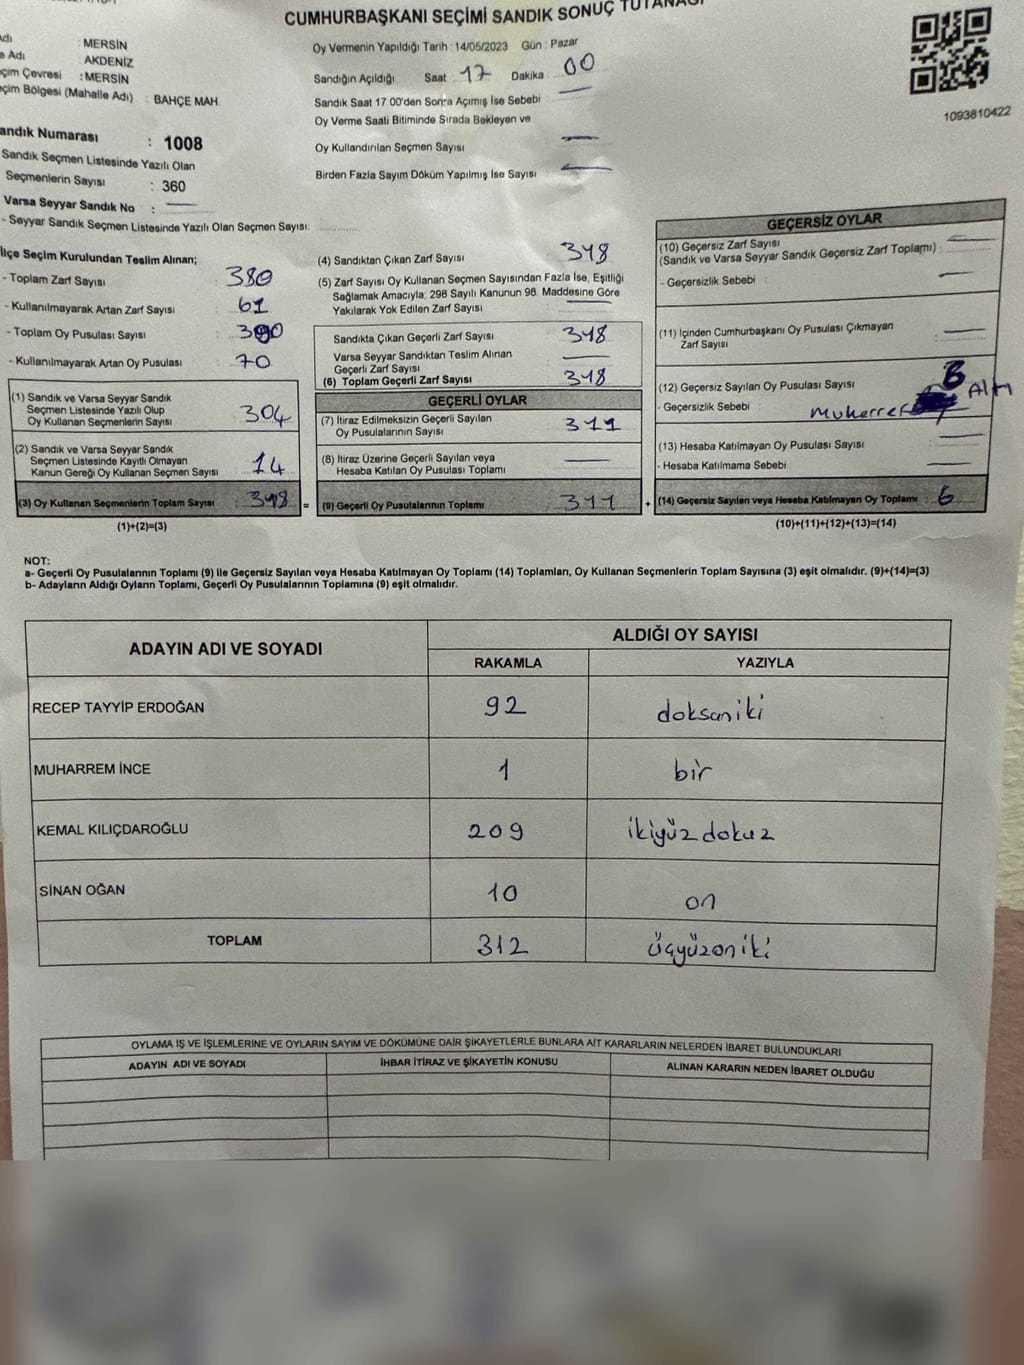 CUMHURBAŞKANI SEÇİMİ SANDIK SONUÇ TUTANAĞI
: MERSİN
: AKDENİZ
: MERSİN
(Mahalle Adı) : BAHÇE MAH.
Sandık Numarası : 1008
Sandık Seçmen Listesinde Yazılı Olan
Seçmenlerin Sayısı : 360
Varsa Seyyar Sandık No :
- Seyyar Sandık Seçmen Listesinde Yazılı Olan Seçmen Sayısı:
Oy Vermenin Yapıldığı Tarih : 14/05/2023 Gün : Pazar
Sandığın Açıldığı Saat 17 Dakika 00
Sandık Saat 17 00'den Sonra Açımış İse Sebebi
Oy Verme Saati Bitiminde Sırada Bekleyen ve
Oy Kullandırılan Seçmen Sayısı
Birden Fazla Sayım Döküm Yapılmış İse Sayısı
1093810422
İlçe Seçim Kurulundan Teslim Alınan;
- Toplam Zarf Sayısı : 380
- Kullanılmayarak Artan Zarf Sayısı : 61
- Toplam Oy Pusulası Sayısı :
- Kullanılmayarak Artan Oy Pusulası : 70
(1) Sandık ve Varsa Seyyar Sandık
Seçmen Listesinde Yazılı Olup
Oy Kullanan Seçmenlerin Sayısı : 304
(2) Sandık ve Varsa Seyyar Sandık
Seçmen Listesinde Kayıtlı Olmayan
Kanun Gereği Oy Kullanan Seçmen Sayısı : 14
(3) Oy Kullanan Seçmenlerin Toplam Sayısı : 318
(1)+(2)=(3)
(4) Sandıktan Çıkan Zarf Sayısı : 318
(5) Zarf Sayısı Oy Kullanan Seçmen Sayısından Fazla İse, Eşitliği
Sağlamak Amacıyla; 298 Sayılı Kanunun 98. Maddesine Göre
Yakılarak Yok Edilen Zarf Sayısı :
Sandıkta Çıkan Geçerli Zarf Sayısı : 318
Varsa Seyyar Sandıktan Teslim Alınan
Geçerli Zarf Sayısı :
(6) Toplam Geçerli Zarf Sayısı : 318
GEÇERLİ OYLAR
(7) İtiraz Edilmeksizin Geçerli Sayılan
Oy Pusulalarının Sayısı : 311
(8) İtiraz Üzerine Geçerli Sayılan veya
Hesaba Katılan Oy Pusulası Toplamı :
= (9) Geçerli Oy Pusulalarının Toplamı : 311 +
GEÇERSİZ OYLAR
(10) Geçersiz Zarf Sayısı
(Sandık ve Varsa Seyyar Sandık Geçersiz Zarf Toplamı) :
- Geçersizlik Sebebi :
(11) İçinden Cumhurbaşkanı Oy Pusulası Çıkmayan
Zarf Sayısı :
(12) Geçersiz Sayılan Oy Pusulası Sayısı : 6
- Geçersizlik Sebebi : Mukerref Altı
(13) Hesaba Katılmayan Oy Pusulası Sayısı :
- Hesaba Katılmama Sebebi :
(14) Geçersiz Sayılan veya Hesaba Katılmayan Oy Toplamı : 6
(10)+(11)+(12)+(13)=(14)
NOT:
a- Geçerli Oy Pusulalarının Toplamı (9) ile Geçersiz Sayılan veya Hesaba Katılmayan Oy Toplamı (14) Toplamları, Oy Kullanan Seçmenlerin Toplam Sayısına (3) eşit olmalıdır. (9)+(14)=(3)
b- Adayların Aldığı Oyların Toplamı, Geçerli Oy Pusulalarının Toplamına (9) eşit olmalıdır.
ADAYIN ADI VE SOYADI ALDIĞI OY SAYISI
RAKAMLA YAZIYLA
RECEP TAYYİP ERDOĞAN 92 doksaniki
MUHARREM İNCE 1 bir
KEMAL KILIÇDAROĞLU 209 ikiyüzdokuz
SİNAN OĞAN 10 on
TOPLAM 312 üçyüzoniki
OYLAMA İŞ VE İŞLEMLERİNE VE OYLARIN SAYIM VE DÖKÜMÜNE DAİR ŞİKAYETLERLE BUNLARA AİT KARARLARIN NELERDEN İBARET BULUNDUKLARI
ADAYIN ADI VE SOYADI İHBAR İTİRAZ VE ŞİKAYETİN KONUSU ALINAN KARARIN NEDEN İBARET OLDUĞU